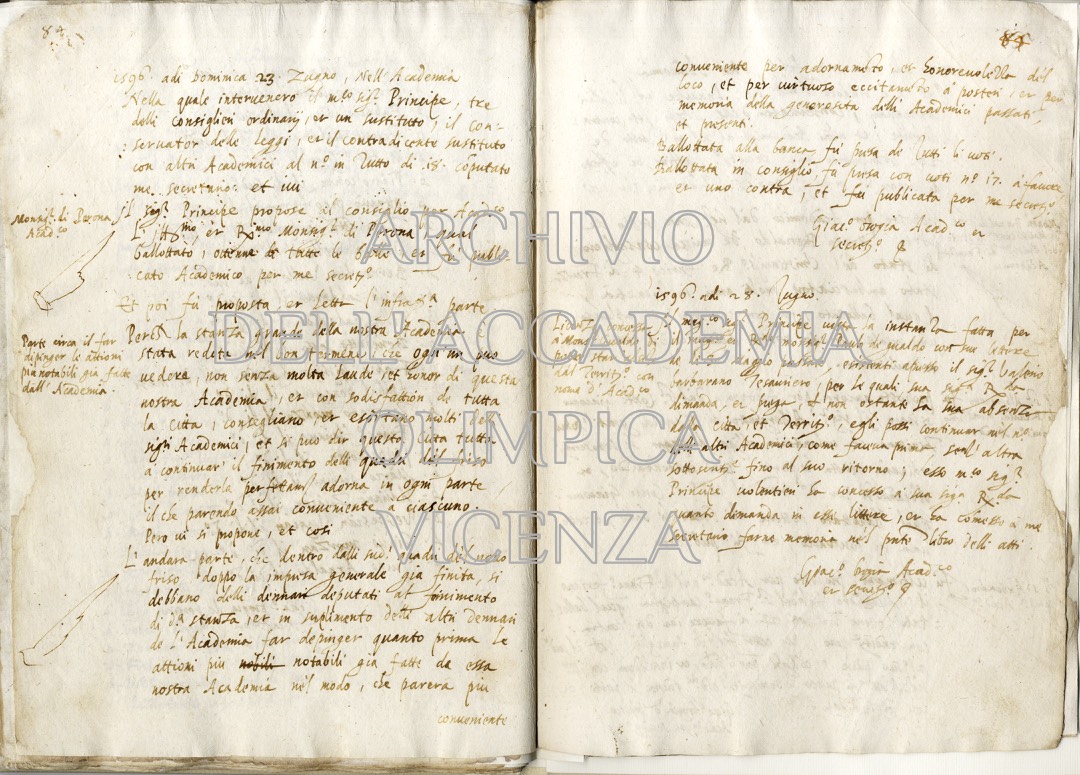 84
1596. adi Dominica 23. Zugno, Nell'Academia
Nella quale intervenero il m.co sig.r Principe, tre
delli consiglieri ordinarij, et un sustituto, il con-
servator delle leggi, et il contradicente sustituto
con altri Academici al n.o in tutto di 18. computato
me secretario. et iui
Monsig.r di Verona
Acad.co
Il sig.r Principe propose al consiglio per Acad.co
L'Ill.mo, et R.mo Monsig.r di Verona, qual
ballottato, ottenne tutte le balle et fu publi-
cato Academico per me secret.o
Et poi fu proposta, et letta l'infra.ta parte
Parte circa il far
dipinger le attioni
piu notabili gia fatte
dall'Academia
Perche la stanza grande della nostra Academia è
stata redutta nel bon termene che ogni un puo
vedere, non senza molta laude, et honor di questa
nostra Academia, et con sodisfattion de tutta
la citta, consegliano, et essortano molti de
sig.ri Academici, et si puo dir questa citta tutta
a continuar il finimento delli quadri del friso
per renderla perfetam.te adorna in ogni parte
il che parendo assai conveniente à ciascuno.
Pero vi si propone, et cosi
L'andara parte, che dentro dalli sud.ti quadri del
friso doppo la impresa generale gia finita, si
debbano delli dennari deputati al finimento
di d.a stanza, et in suplimento delli altri dennari
de l'Academia far depinger quanto prima le
attioni piu nobili notabili gia fatte da essa
nostra Academia nel modo, che parera piu
conveniente
conveniente per adornamento, et honorevolezza del
loco, et per virtuoso eccitamento a posteri, et per
memoria della generosita delli Academici passati,
et presenti.
Ballottata alla banca fu presa de tutti li voti.
Ballottata in consiglio fu presa con voti n.o 17. à favore
et uno contra, et fu publicata per me secret.o
Acad.co et
secret.o
1596. adi 28. Zugno.
Licenza concessa
poter star
dal Territ.o con
nome d'Acad.co
Il mag.co sig.r Principe vista la instanza fatta per
con sue littere
de di maggio passato, essistenti apresso il sig.r
Barbarano Tesauriero, per le quali sua sig.a R.da
dimanda, et prega, che non ostante la sua absenza
dalla citta, et Territ.o, egli possi continuar nel n.o
delli altri Academici, come faceva prima, senz'altra
fino al suo ritorno; esso m.co sig.r
Principe volentieri ha concesso a sua sig.a R.da
quanto dimanda in esse littere, et ha comesso a me
secretario farne memoria nel pnte libro delli atti.
Acad.co
et secret.o
ARCHIVIO
DELL'ACCADEMIA
OLIMPICA
VICENZA